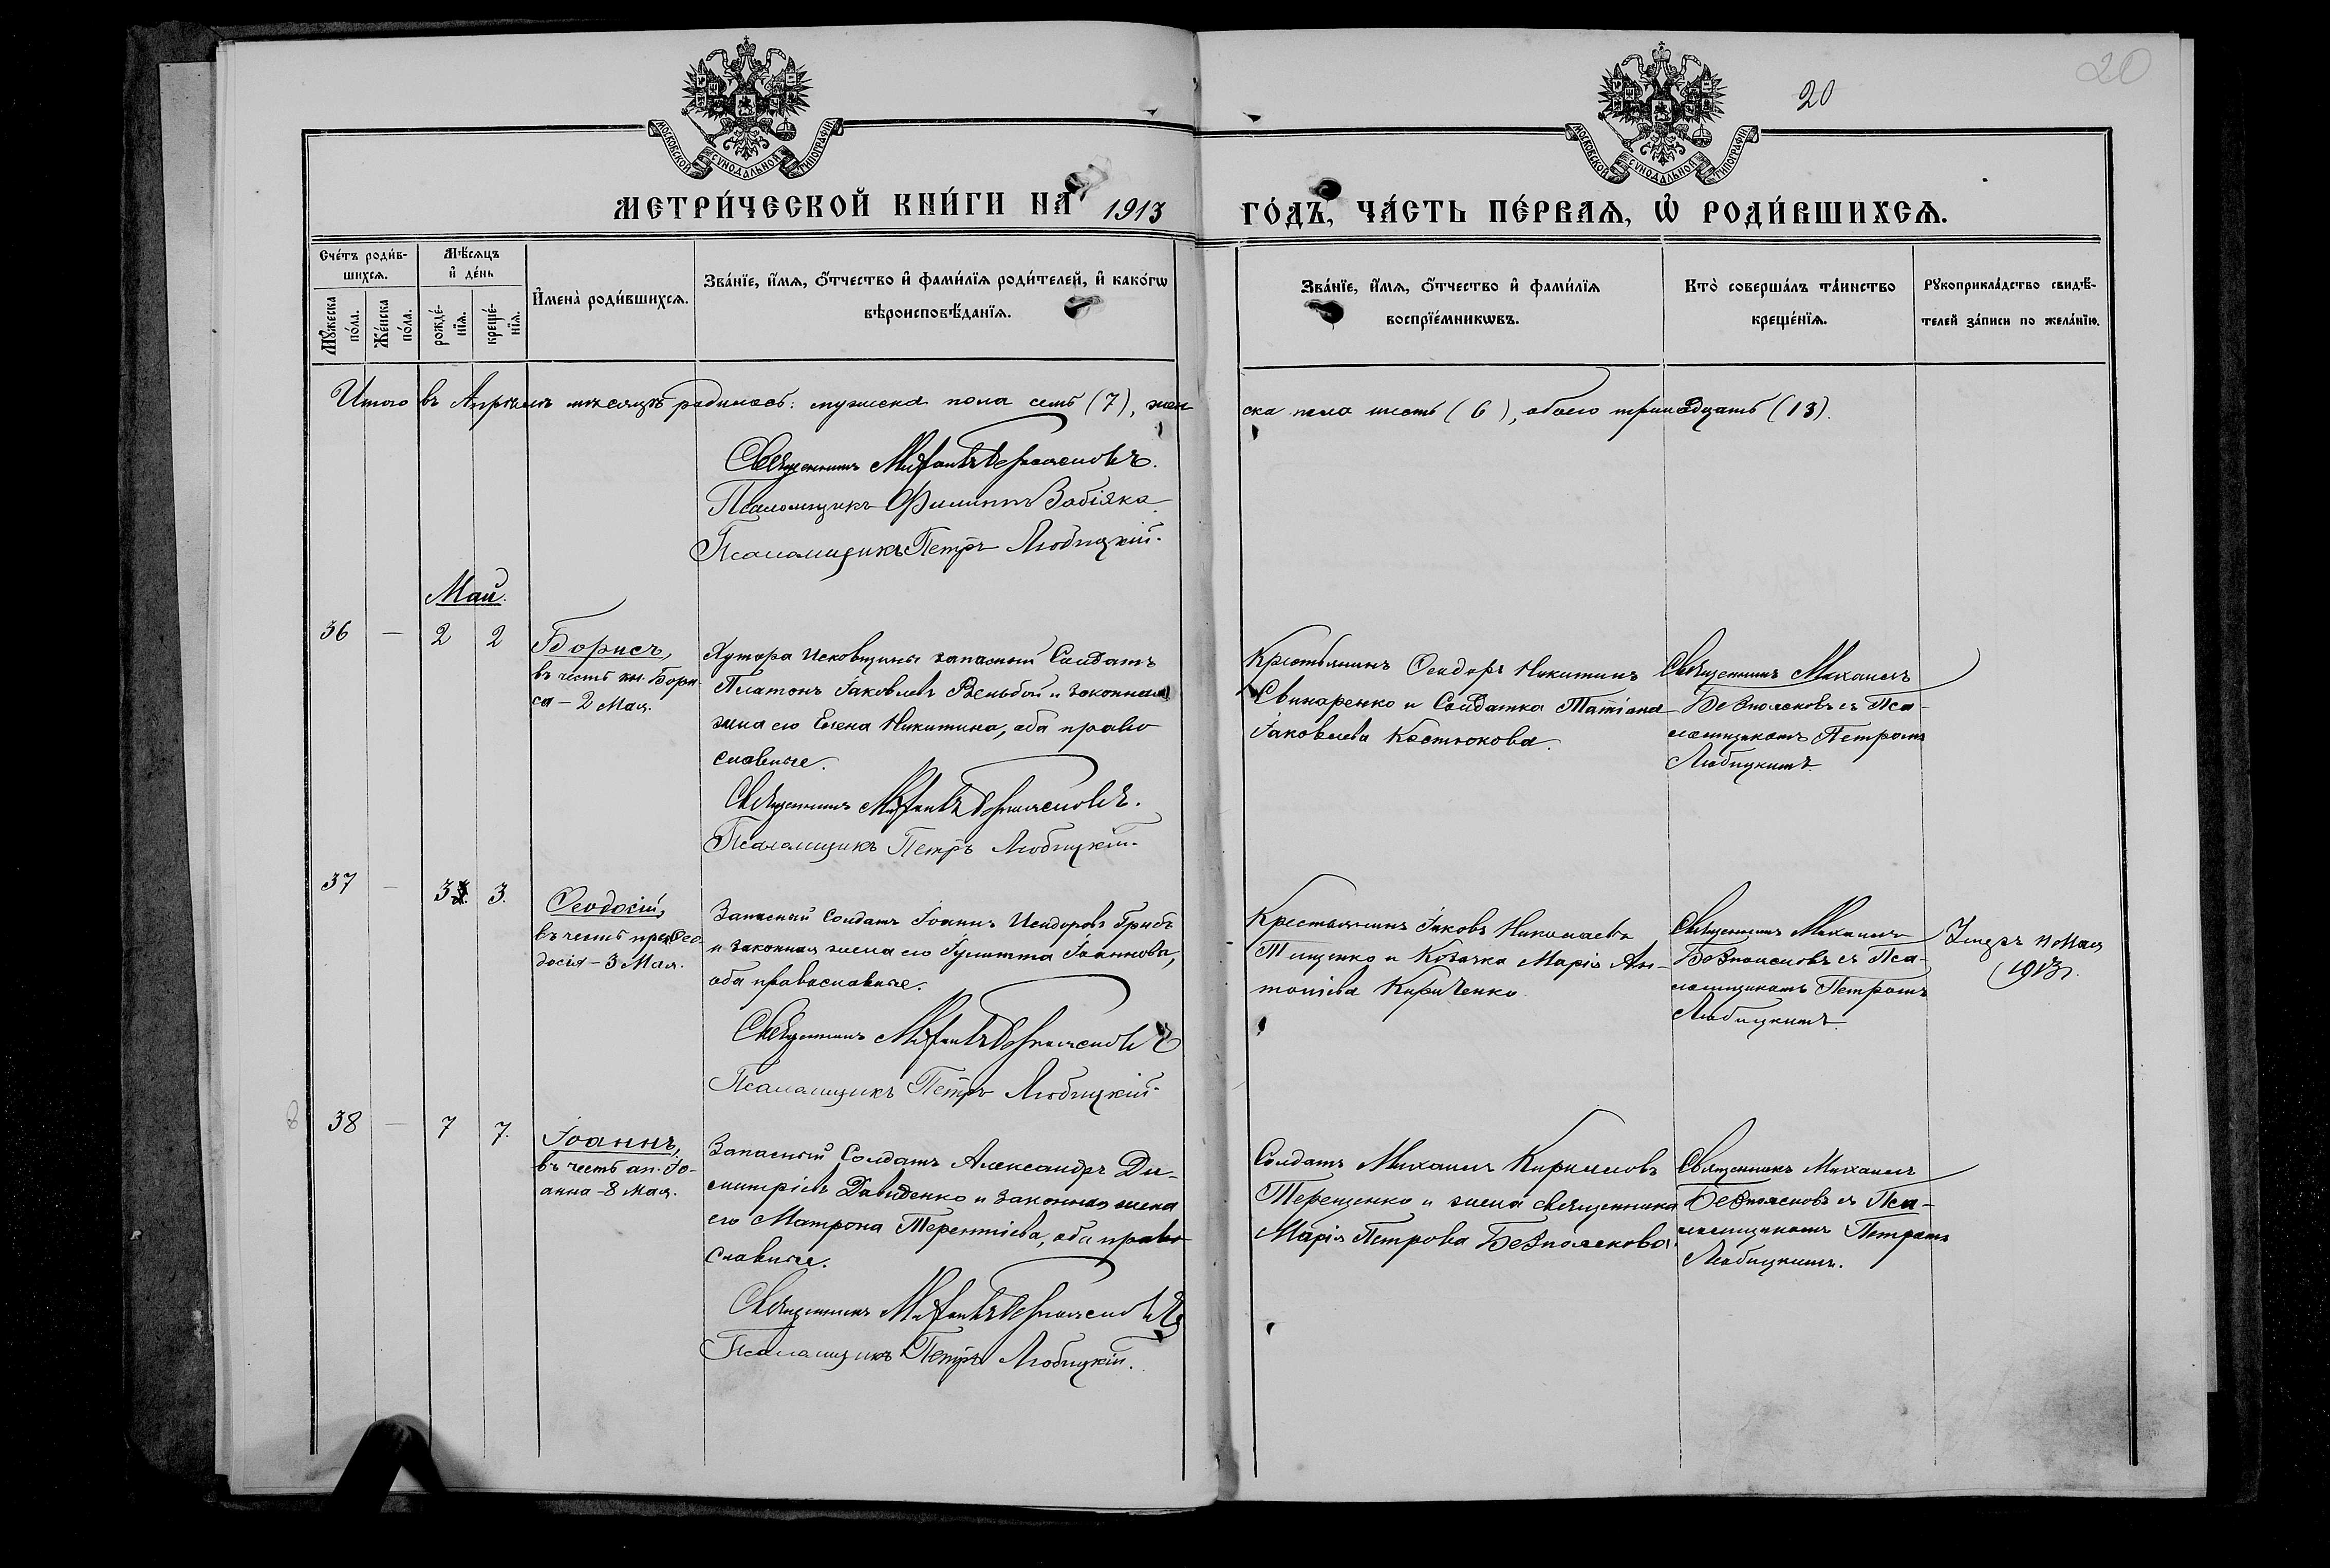 20
20
МОСКОВСКОЙ СУНОДАЛЬНОЙ ТИПОГРАФІИ
МОСКОВСКОЙ СУНОДАЛЬНОЙ ТИПОГРАФІИ
МЕТРИ́ЧЕСКОЙ КНИ́ГИ НА 1913
ГО́ДЪ, ЧА́СТЬ ПЕ́РВАѦ, Ѡ҆ РОДИ́ВШИХСѦ.
Сче́тъ роди́в-
шихсѧ.
Мꙋ́жеска
по́ла.
Же́нска
по́ла.
Мѣ́сѧцъ
и҆ де́нь
рожде́-
нїѧ.
креще́-
нїѧ.
И҆мена̀ роди́вшихсѧ.
Зва́нїе, и҆́мѧ, ѻ҆́тчество и҆ фами́лїѧ роди́телей, и҆ како́гѡ
вѣроисповѣ́данїѧ.
Зва́нїе, и҆́мѧ, ѻ҆́тчество и҆ фами́лїѧ
воспрїе́мникѡвъ.
Кто̀ соверша́лъ та́инство
креще́нїѧ.
Рꙋкоприкла́дство свидѣ́-
телей за́писи по жела́нїю.
Итого въ Апрѣлѣ мѣсяцѣ родилось: мужеска пола семь (7), жен
ска пола шесть (6), обоего тринадцать (13).
Священникъ
Псаломщикъ Филиппъ Забіяка
Псаломщикъ Петръ Любицкій.
Май.
36 — 2 2
Борисъ,
въ честь кн. Бори-
са – 2 Мая.
Хутора Исковщины запасный Солдатъ
Платонъ Іаковлевъ и законная
жена его Елена Никитина, оба право
славные.
Священникъ
Псаломщикъ Петръ Любицкій.
Крестьянинъ Ѳеодоръ Никитинъ
Свинаренко и Солдатка Татіана
Іаковлева Костюкова.
Священникъ Михаилъ
Безпоясновъ съ Пса-
ломщикомъ Петромъ
Любицкимъ.
37 — 3 3.
Ѳеодосій,
въ честь преп. Ѳео-
досія – 3 Мая.
Запасный Солдатъ Іоаннъ Исидоровъ Грибъ
и законная жена его Іулитта Іоаннова,
оба православные.
Священникъ
Псаломщикъ Петръ Любицкій.
Крестьянинъ Іаковъ Николаевъ
Тищенко и Козачка Марія Ан-
тоніева Кириченко
Священникъ Михаилъ
Безпоясновъ съ Пса-
ломщикомъ Петромъ
Любицкимъ.
Умеръ 11 Мая
1913 г.
38 — 7 7.
Іоаннъ,
въ честь ап. Іо-
анна – 8 Мая.
Запасный Солдатъ Александръ Ди-
митріевъ Давиденко и законная жена
его Матрона Терентіева, оба право
славные.
Священникъ
Псаломщикъ Петръ Любицкій.
Солдатъ Михаилъ Кирилловъ
Терещенко и жена священника
Марія Петрова Безпояснова.
Священникъ Михаилъ
Безпоясновъ съ Пса-
ломщикомъ Петромъ
Любицкимъ.